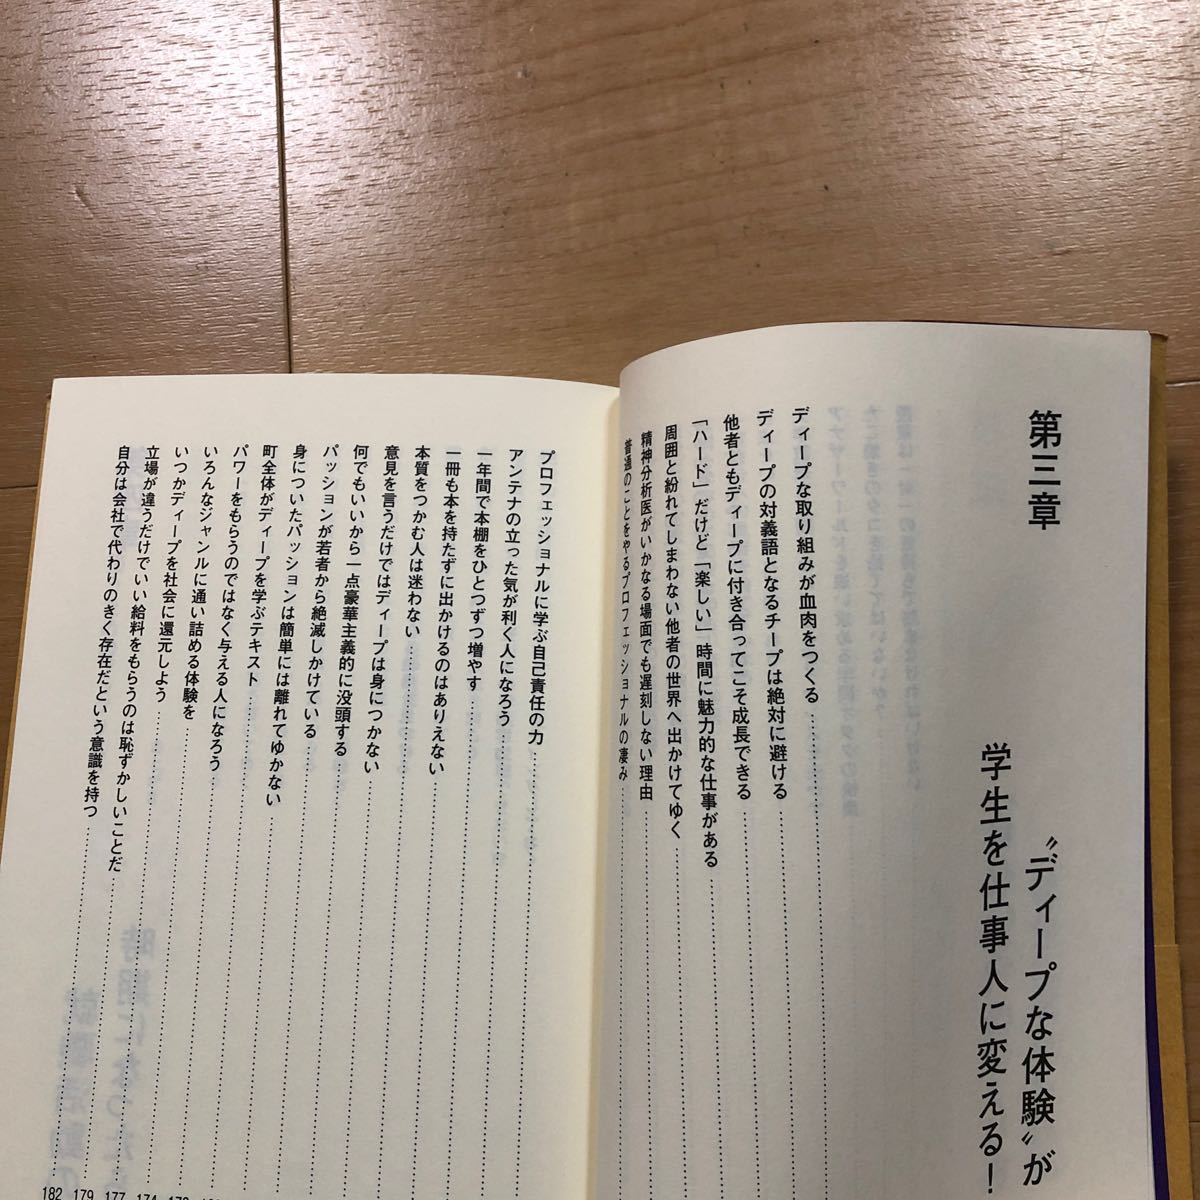 第三章
〝ディープな体験〟が
学生を仕事人に変える！
ディープな取り組みが血肉をつくる
ディープの対義語となるチープは絶対に避ける
他者ともディープに付き合ってこそ成長できる
「ハード」だけど「楽しい」時間に魅力的な仕事がある
周囲と紛れてしまわない他者の世界へ出かけてゆく
精神分析医がいかなる場面でも遅刻しない理由
普通のことをやるプロフェッショナルの凄み
プロフェッショナルに学ぶ自己責任の力
アンテナの立った気が利く人になろう
一年間で本棚をひとつずつ増やす
一冊も本を持たずに出かけるのはありえない
本質をつかむ人は迷わない
意見を言うだけではディープは身につかない
何でもいいから一点豪華主義的に没頭する
パッションが若者から絶滅しかけている
身についたパッションは簡単には離れてゆかない
町全体がディープを学ぶテキスト
パワーをもらうのではなく与える人になろう
いろんなジャンルに通い詰める体験を
いつかディープを社会に還元しよう
立場が違うだけでいい給料をもらうのは恥ずかしいことだ
自分は会社で代わりのきく存在だという意識を持つ
182 179 177 174